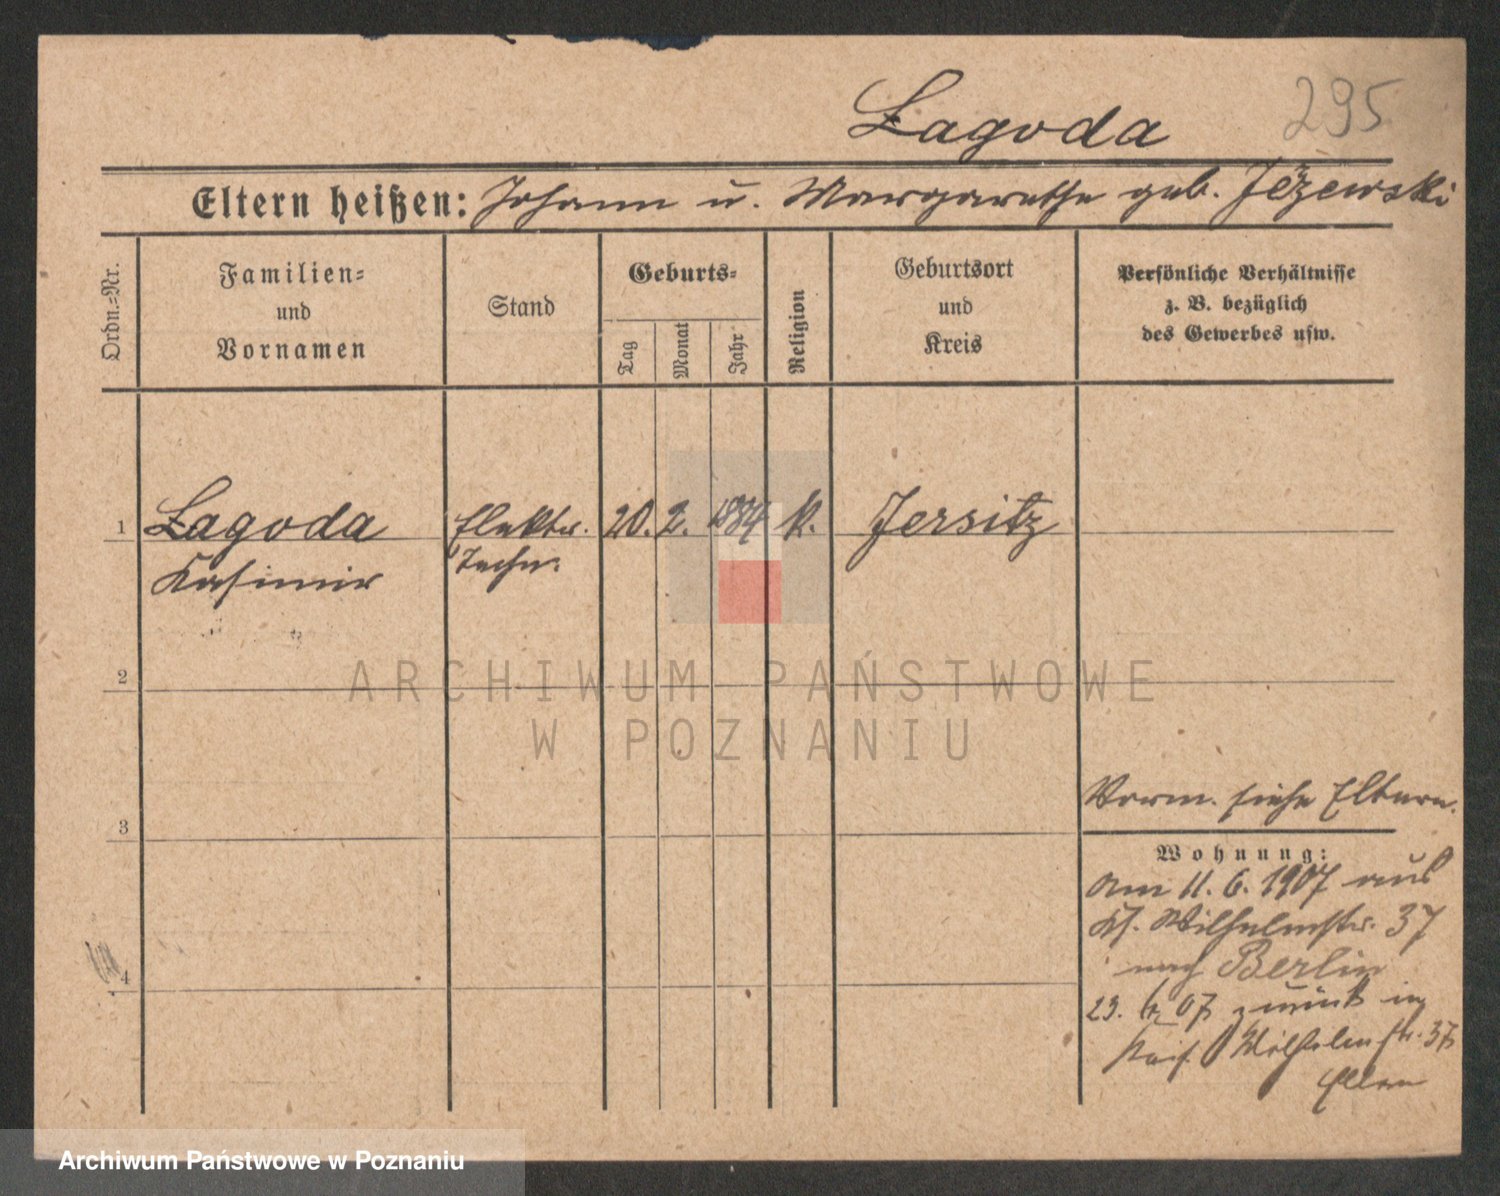 Łagoda 295
Eltern heißen: Johann u. Margarethe geb. Jeżewski
Ordn.-Nr.
Familien-
und
Vornamen
Stand
Geburts-
Tag
Monat
Jahr
Religion
Geburtsort
und
Kreis
Persönliche Verhältnisse
z. B. bezüglich
des Gewerbes usw.
1 Łagoda Elektr. 20. 2. 1884 k. Jersitz
Kasimir Techn.
2
3
4
Vorm. siehe Eltern.
Wohnung:
Am 11. 6. 1907 aus
Ks. Wilhelmstr. 37
nach Berlin
23. 07 zurück in
Kais. Wilhelmstr. 37
Eltern
ARCHIWUM PAŃSTWOWE
W POZNANIU
Archiwum Państwowe w Poznaniu